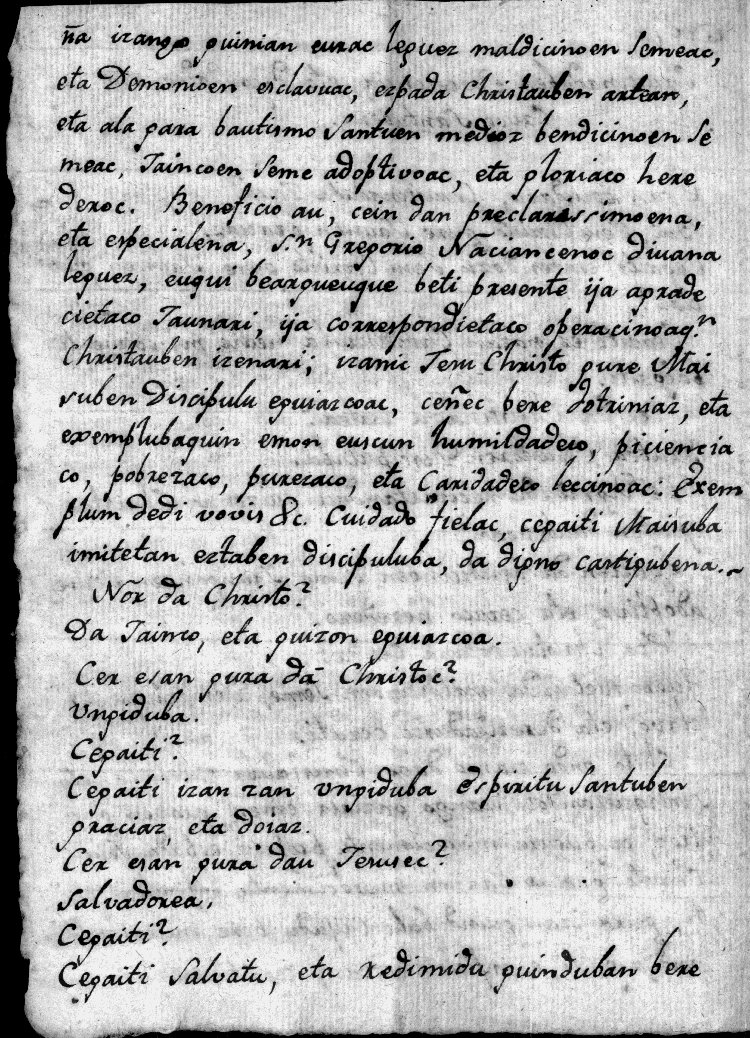 ña izango guinian eurac leguez maldicinoen Semeac,
eta Demonioen esclavuac, ezpada Christauben artean,
eta ala gara bautismo Santuen medioz bendicinoen Se
meac, Jaincoen Seme adoptivoac, eta gloriaco here
deroc. Beneficio au, cein dan preclarissimoena,
eta especialena, S.n Gregorio Naciancenoc diuana
leguez, eugui bearqueuque beti presente ija agrade
cietaco Jaunari, ija correspondietaco operacinoaq.n
Christauben izenari; izanic Jesu Christo gure Mai
suben Discipulu eguiazcoac, ceñec bere dotriniaz, eta
exemplubaquin emon euscun humildadeco, piciencia
co, pobrezaco, purezaco, eta Caridadeco leccinoac: Exem
plum dedi vovis &c. Cuidado fielac, cegaiti Maisuba
imitetan eztaben discipuluba, da digno castigubena.~
Nor da Christo?
Da Jainco, eta guizon eguiazcoa.
Cer esan gura dā Christoc?
Vngiduba.
Cegaiti?
Cegaiti izan zan vngiduba Espiritu Santuben
graciaz, eta doiaz.
Cer esan gura dau Jesusec?
Salvadorea,
Cegaiti?
Cegaiti Salvatu, eta redimidu guinduban bere